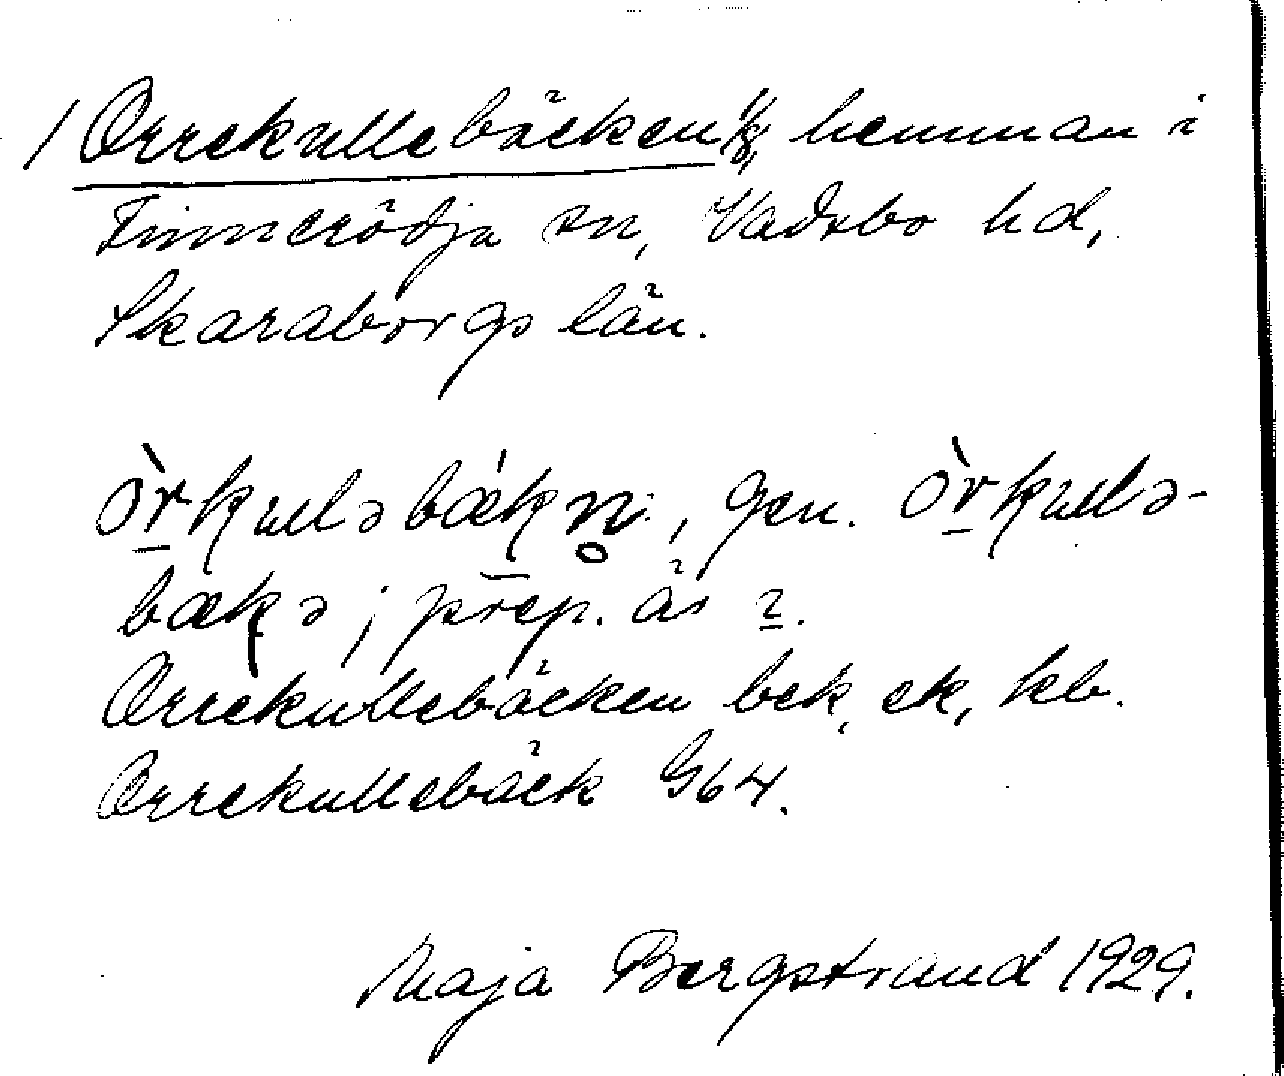 1 Orrekullebäcken 1/8, hemman i
Finnerödja sn, Vadsbo hd,
Skaraborgs län.
òr̲kulləbækn̥, gen. òr̲kullə-
bækə; prep. är 2.
Orrekullebäcken bek, ek, kb.
Orrekullebäck G64.
Maja Bergstrand 1929.